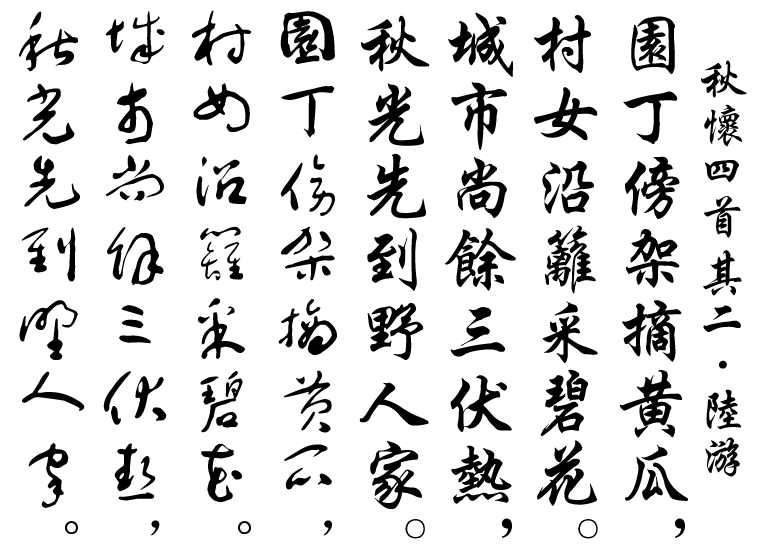 秋懷四首其二·陸游
園丁傍架摘黃瓜，
村女沿籬采碧花。
城市尚餘三伏熱，
秋光先到野人家。
園丁傍架摘黃瓜，
村女沿籬采碧花。
城市尚餘三伏熱，
秋光先到野人家。